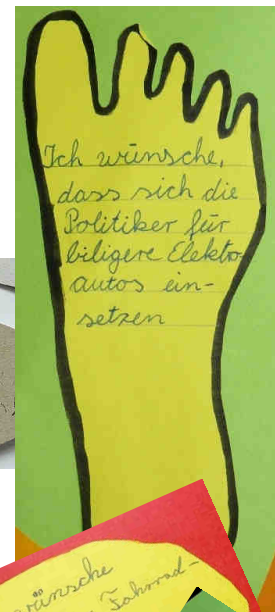 Ich wünsche,
dass sich die
Politiker für
biligere Elektro-
autos ein-
setzen
wünsche
Fahrrad-